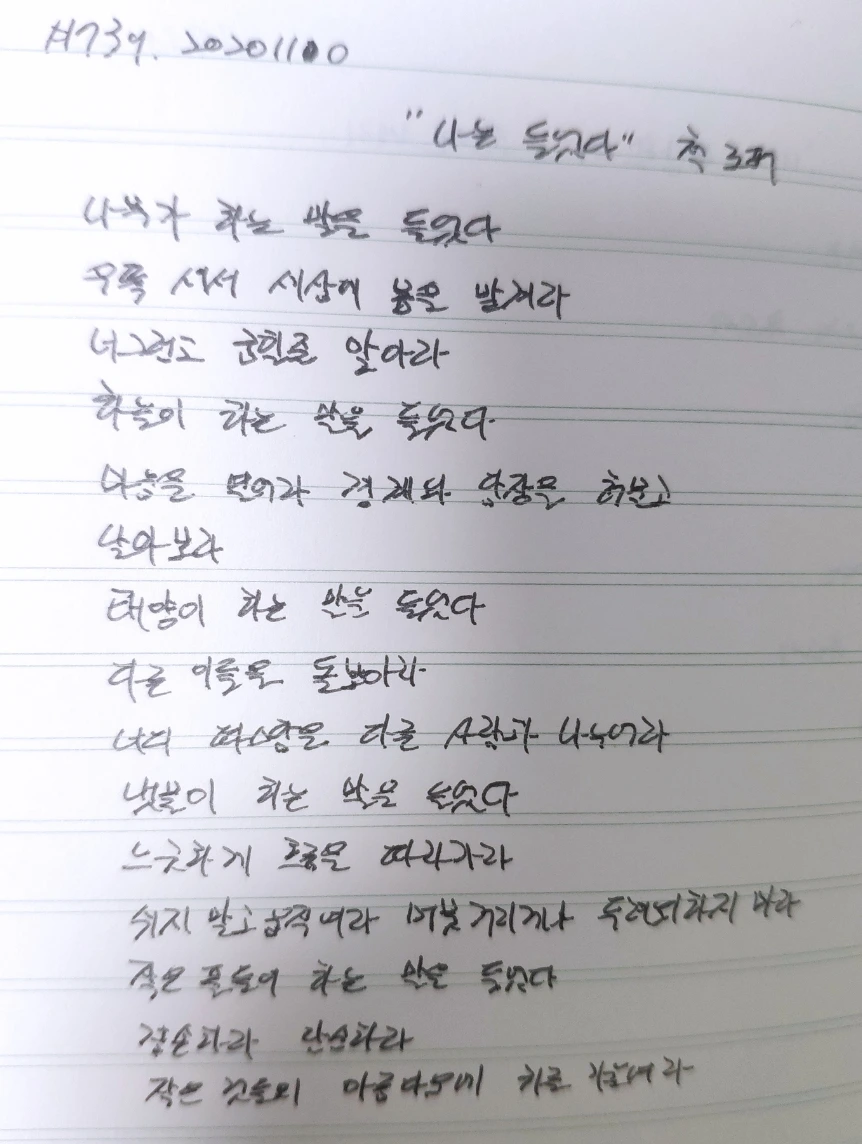 #739. 20201110
"나는 들었다" 척 로퍼
나무가 하는 말을 들었다
우뚝 서서 세상에 몸을 맡겨라
너그럽고 굽힐줄 알아라
하늘이 하는 말을 들었다
마음을 열어라 경계와 담장을 허물고
날아보라
태양이 하는 말을 들었다
다른 이들을 돌보아라
너의 따스함을 다른 사람과 나누어라
냇물이 하는 말을 들었다
느긋하게 흐름을 따라가라
쉬지 말고 움직여라 머뭇거리거나 두려워하지 마라
작은 풀들이 하는 말을 들었다
겸손하라 단순하라
작은 것들의 아름다움에